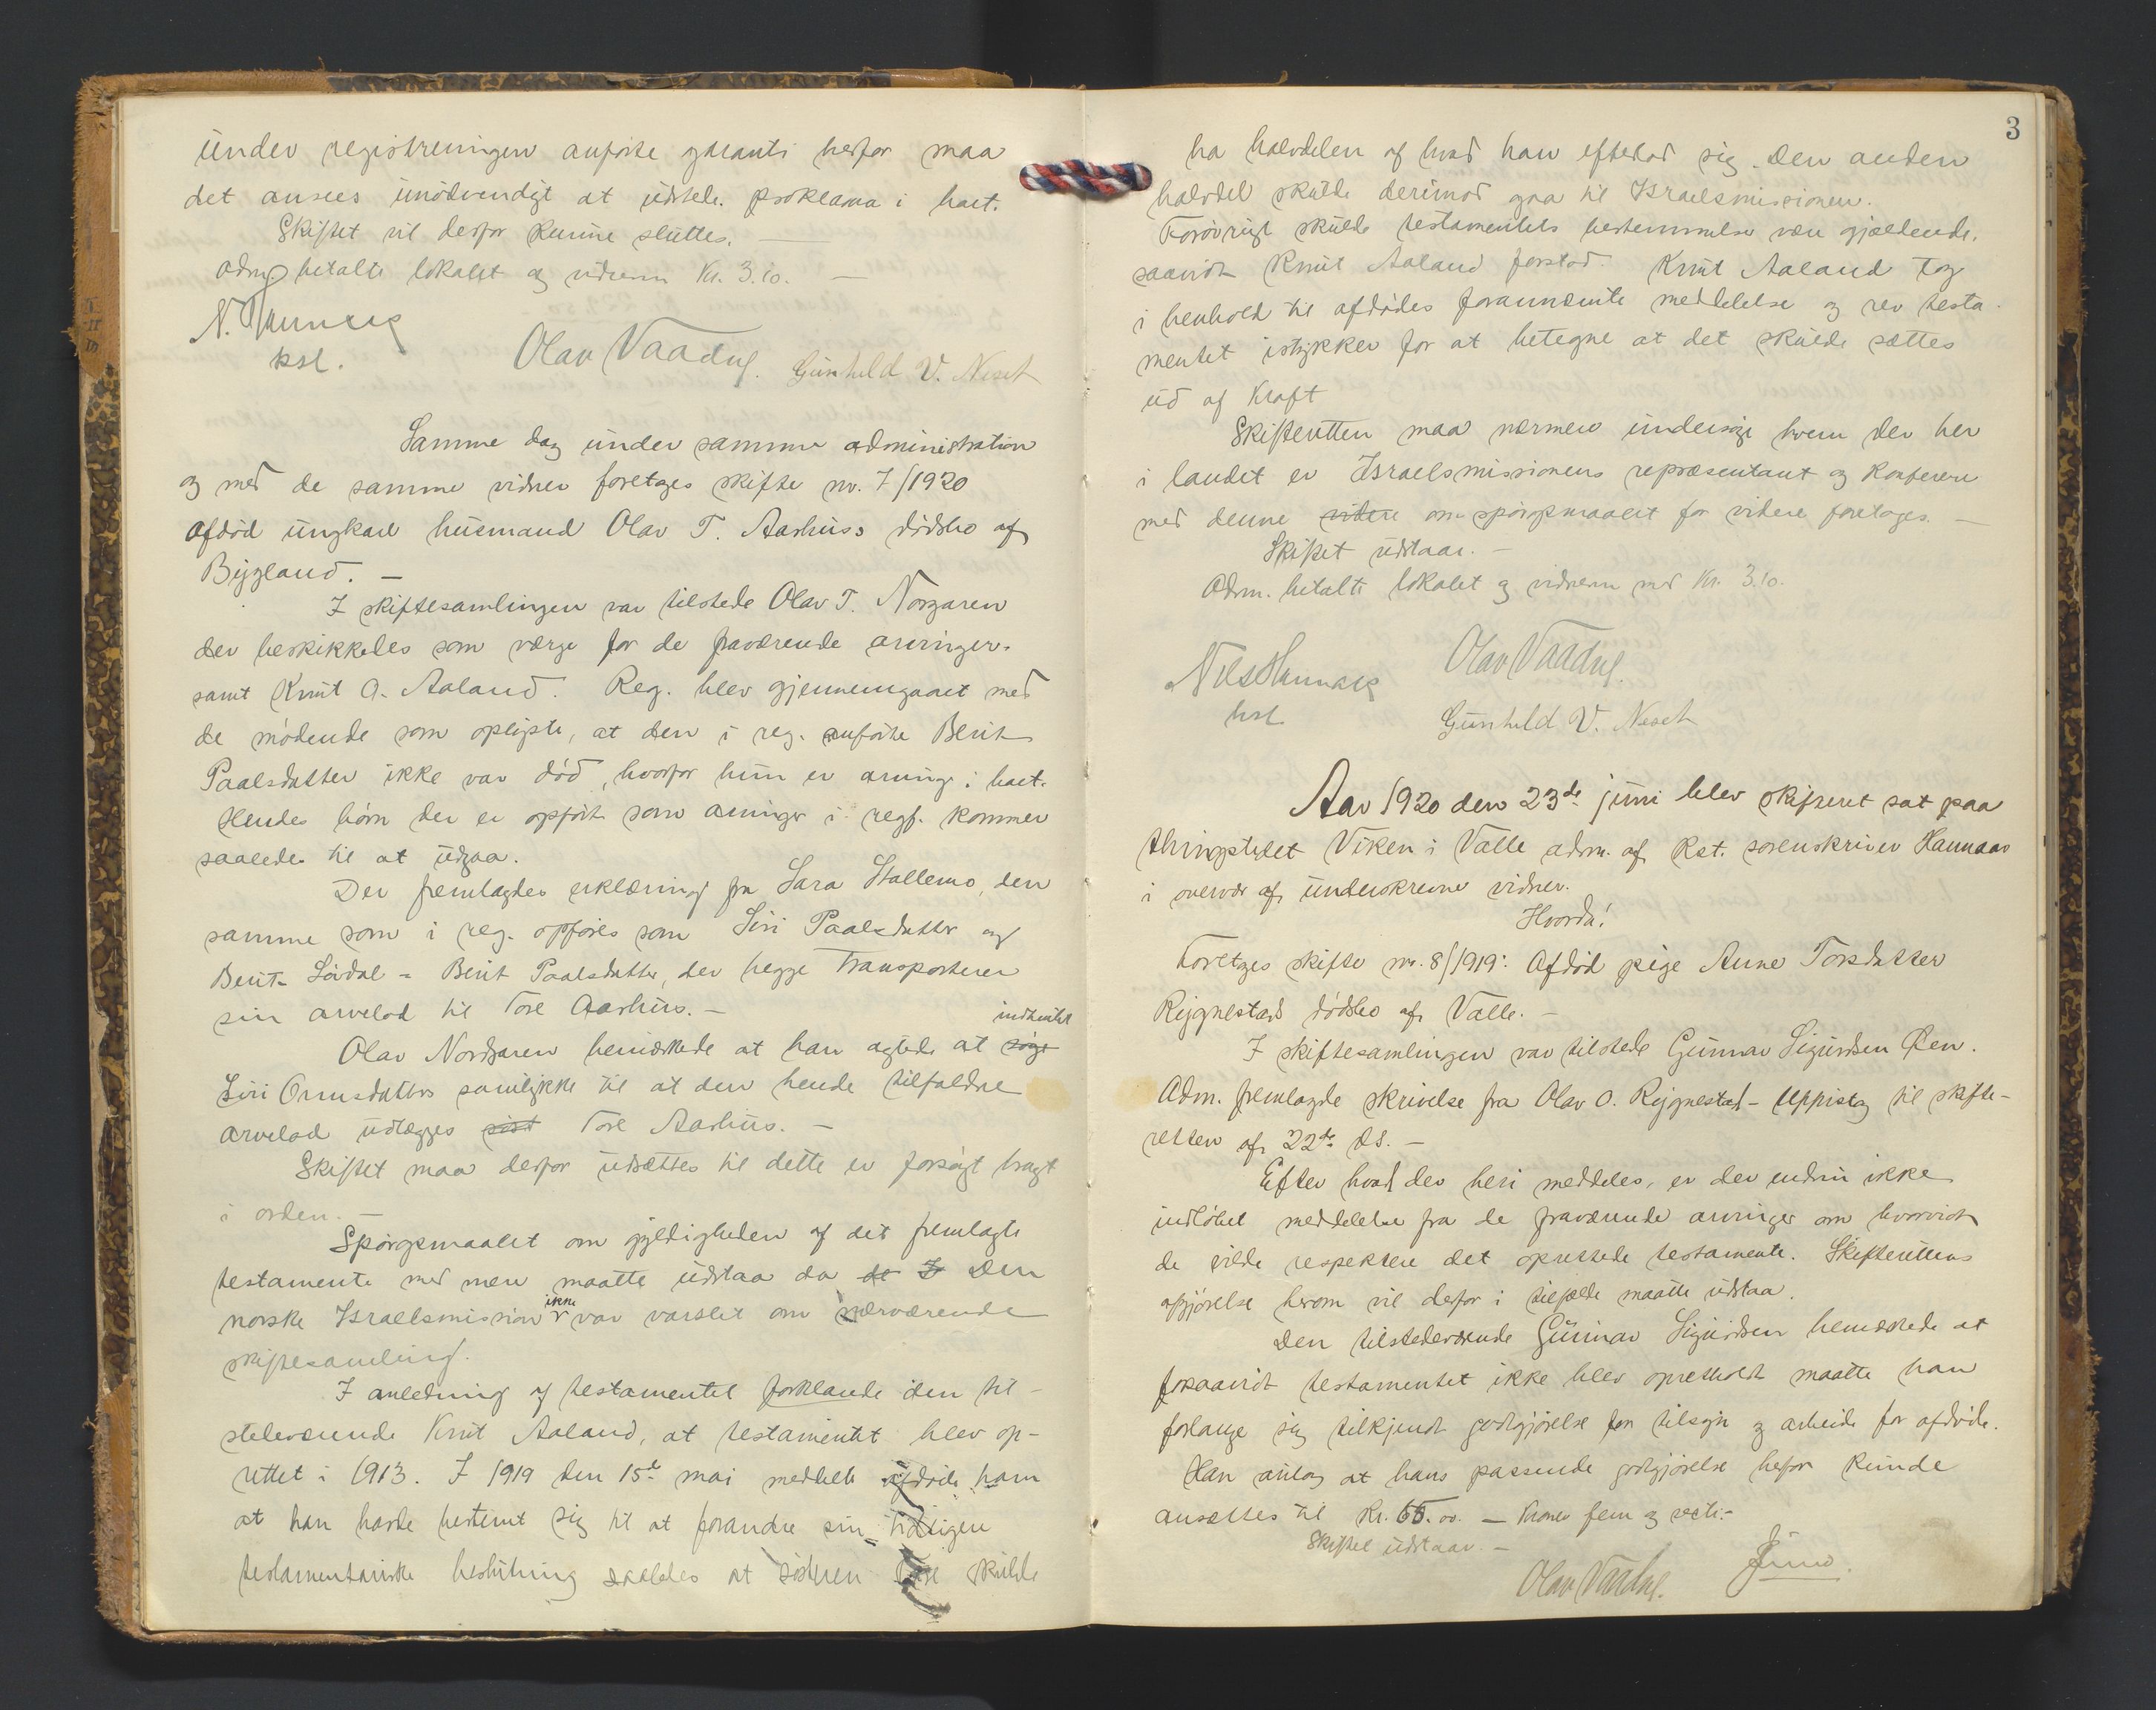 under registreringen anførte garanti herfor maa
det ansees unødvendigt at udstede proklama i boet.
Skiftet vil derfor kunne sluttes. —
Adm. betalte lokalet og vidnerne Kr. 3.10. —
kst.
Olav Vaadng. Gunhild V. Neset
Samme dag under samme administration
og med de samme vidner foretages skifte nr. 7/1920
Afdød ungkarl husmand Olav T. Aarhuss dødsbo af
Bygland. —
I skiftesamlingen var tilstede Olav T. Norgaren
der beskikkedes som værge for de fraværende arvinger.
samt Knut A. Aaland. Reg. blev gjennemgaaet med
de mødende som oplyste, at den i reg. anførte Berit
Paalsdatter ikke var død, hvorfor hun er arving i boet.
Hendes børn der er opført som arvinger i regf. kommer
saaledes til at udgaa.
Der fremlagdes erklæring fra Sara Stallemo, den
samme som i reg. opføres som Siri Paalsdatter og
Berit Løvdal = Berit Paalsdatter, der begge transporterer
sin arvelod til Tore Aarhus. —
indhentet
Olav Nordgaren bemærkede at han agtede at søge
Siri Ormsdatters samtykke til at den hende tilfaldne
arvelod udlægges Tore Aarhus. —
Skiftet maa derfor udsættes til dette er forsøgt bragt
i orden. —
Spørgsmaalet om gyldigheden af det fremlagte
testamente med mere maatte udstaa da de I Den
norske Israelsmission ikke var varslet om nærværende
skiftesamling.
I anledning af testamentet forklarede den til-
stedeværende Knut Aaland, at testamentet blev op-
rettet i 1913. I 1919 den 15de mai meddelte afdøde ham
at han havde bestemt sig til at forandre sin tidligere
testamentariske beslutning saaledes at søsteren Tore skulde
3
ha halvdelen af hvad han efterlod sig. Den anden
halvdel skulde derimod gaa til Israelsmissionen.
Forøvrigt skulde testamentets bestemmelser være gjældende.
saavidt Knut Aaland forstod. Knut Aaland tog
i henhold til afdødes forannævnte meddelelse og rev testa-
mentet istykker for at betegne at det skulde sættes
ud af kraft
Skifteretten maa nærmere undersøge hvem der her
i landet er Israelsmissionens repræsentant og konferere
med denne videre om spørgsmaalet før videre foretages. —
Skiftet udstaar. —
Adm. betalte lokalet og vidnerne med Kr. 3.10.
Olav Vaadng.
kst.
Gunhild V. Neset
Aar 1920 den 23de juni blev skifteret sat paa
thingstedet Viken i Valle adm. af Kst. sorenskriver Hannaas
i overvær af underskrevne vidner.
Hvorda!
Foretages skifte nr. 8/1919: Afdød pige Anne Torsdatter
Rygnestads dødsbo af Valle. —
I skiftesamlingen var tilstede Gunnar Sigurdsen Øen.
Adm. fremlagde skrivelse fra Olav O. Rygnestad - Uppistog til skifte-
retten af 22de ds. —
Efter hvad der heri meddeles, er der endnu ikke
indløbet meddelelse fra de fraværende arvinger om hvorvidt
de vilde respektere det oprettede testamente. Skifterettens
afgjørelse herom vil derfor i tilfælde maatte udstaa.
Den tilstedeværende Gunnar Sigurdsen bemærkede at
forsaavidt testamentet ikke blev opretholdt maatte han
forlange sig tilkjendt godtgjørelse for tilsyn og arbeide for afdøde.
Han antog at hans passende godtgjørelse herfor kunde
ansættes til Kr. 65.00. — Kroner fem og seksti. —
Skiftet udstaar. —
Olav Vaadng.